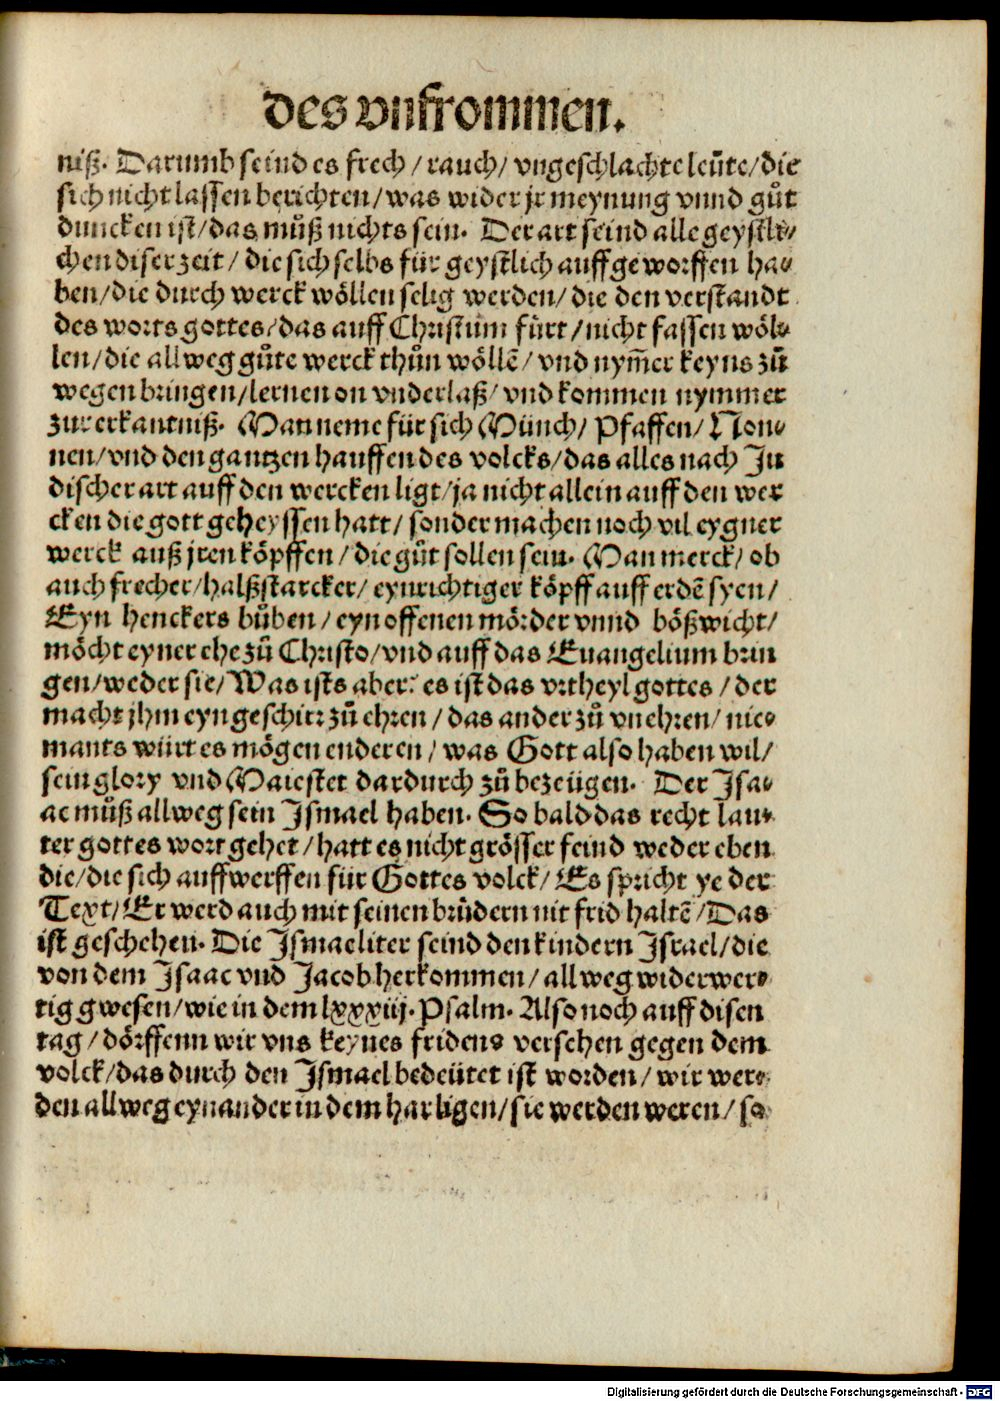 des vnfrommen.
niß. Darumb seind es frech / rauch / vngeschlachte leüte / die
sich nicht lassen berichten / was wider jr meynung vnnd gůt
duncken ist / das můß nichts sein. Der art seind alle geystli⸗
chen diser zeit / die sich selbs für geystlich auffgeworffen ha⸗
ben / die durch werck wöllen selig werden / die den verstandt
des worts gottes / das auff Christum fürt / nicht fassen wöl⸗
len / die allweg gůte werck thůn wöllē / vnd nym̄er keyns zů
wegen bringen / lernen on vnderlaß / vnd kommen nymmer
zur erkantniß. Man neme für sich Münch / Pfaffen / Non⸗
nen / vnd den gantzen hauffen des volcks / das alles nach Ju
discher art auff den wercken ligt / ja nicht allein auff den wer
cken die gott geheyssen hatt / sonder machen noch vil eygner
werck auß jren köpffen / die gůt sollen sein. Man merck / ob
auch frecher / halßstarcker / eynrichtiger köpff auff erdē syen /
Eyn henckers bůben / eyn offenen mörder vnnd bößwicht /
möcht eyner ehe zů Christo / vnd auff das Euangelium brin
gen / weder sie / Was ists aber? es ist das vrtheyl gottes / der
macht jhm eyn geschirr zů ehren / das ander zů vnehren / nie⸗
mants würt es mögen enderen / was Gott also haben wil /
sein glory vnd Maiestet dardurch zů bezeügen. Der Isa⸗
ac můß allweg sein Ismael haben. So bald das recht lau⸗
ter gottes wort gehet / hatt es nicht grösser feind weder eben
die / die sich auffwerffen für Gottes volck / Es spricht ye der
Text / Er werd auch mit seinen brůdern nit frid haltē / Das
ist geschehen. Die Ismaeliter seind den kindern Israel / die
von dem Isaac vnd Jacob herkommen / allweg widerwer⸗
tig gwesen / wie in dem lxxxiij. Psalm. Also noch auff disen
tag / dörffenn wir vns keynes fridens versehen gegen dem
volck / das durch den Ismael bedeütet ist worden / wir wer⸗
den allweg eynander in dem har ligen / sie werden weren / so
Digitalisierung gefördert durch die Deutsche Forschungsgemeinschaft - DFG